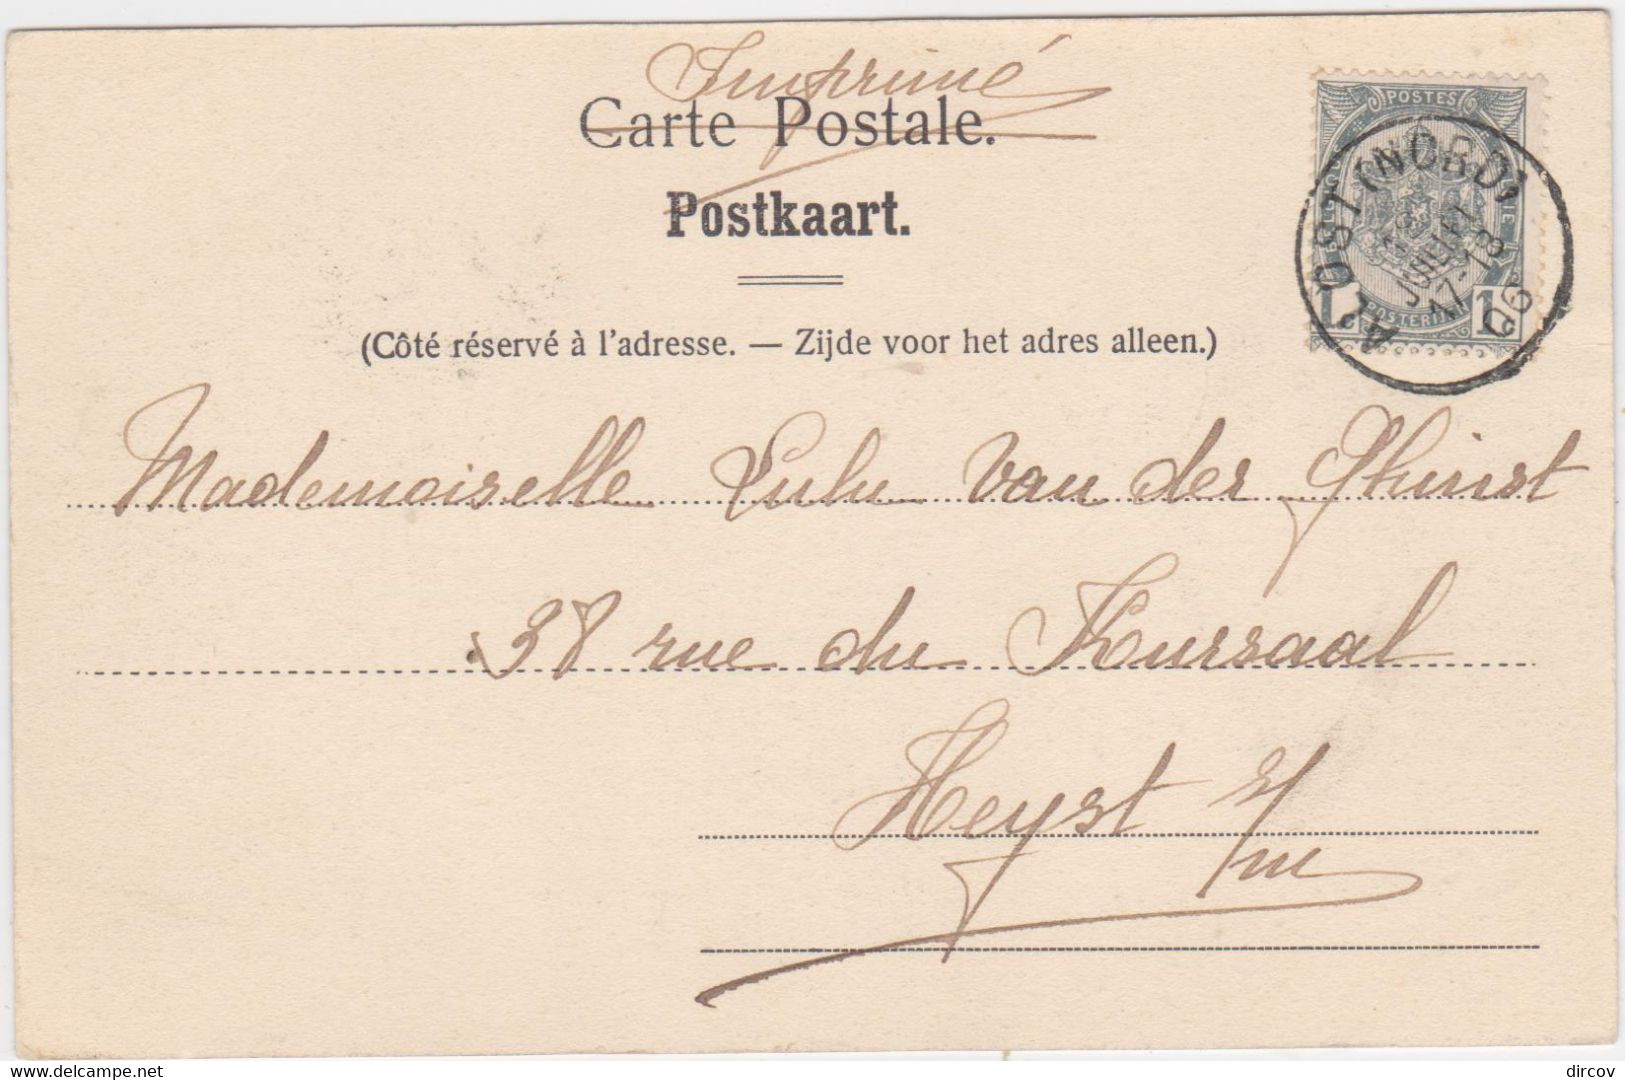 Imprimé
Carte Postale.
Postkaart.
(Côté réservé à l'adresse. — Zijde voor het adres alleen.)
POSTES
1 1
ALOST (NORD)
JUILLET
17-18
06
Mademoiselle Lulu Van der Ghinst
38 rue du Kursaal
Heyst s/m
delcampe.net
dircov